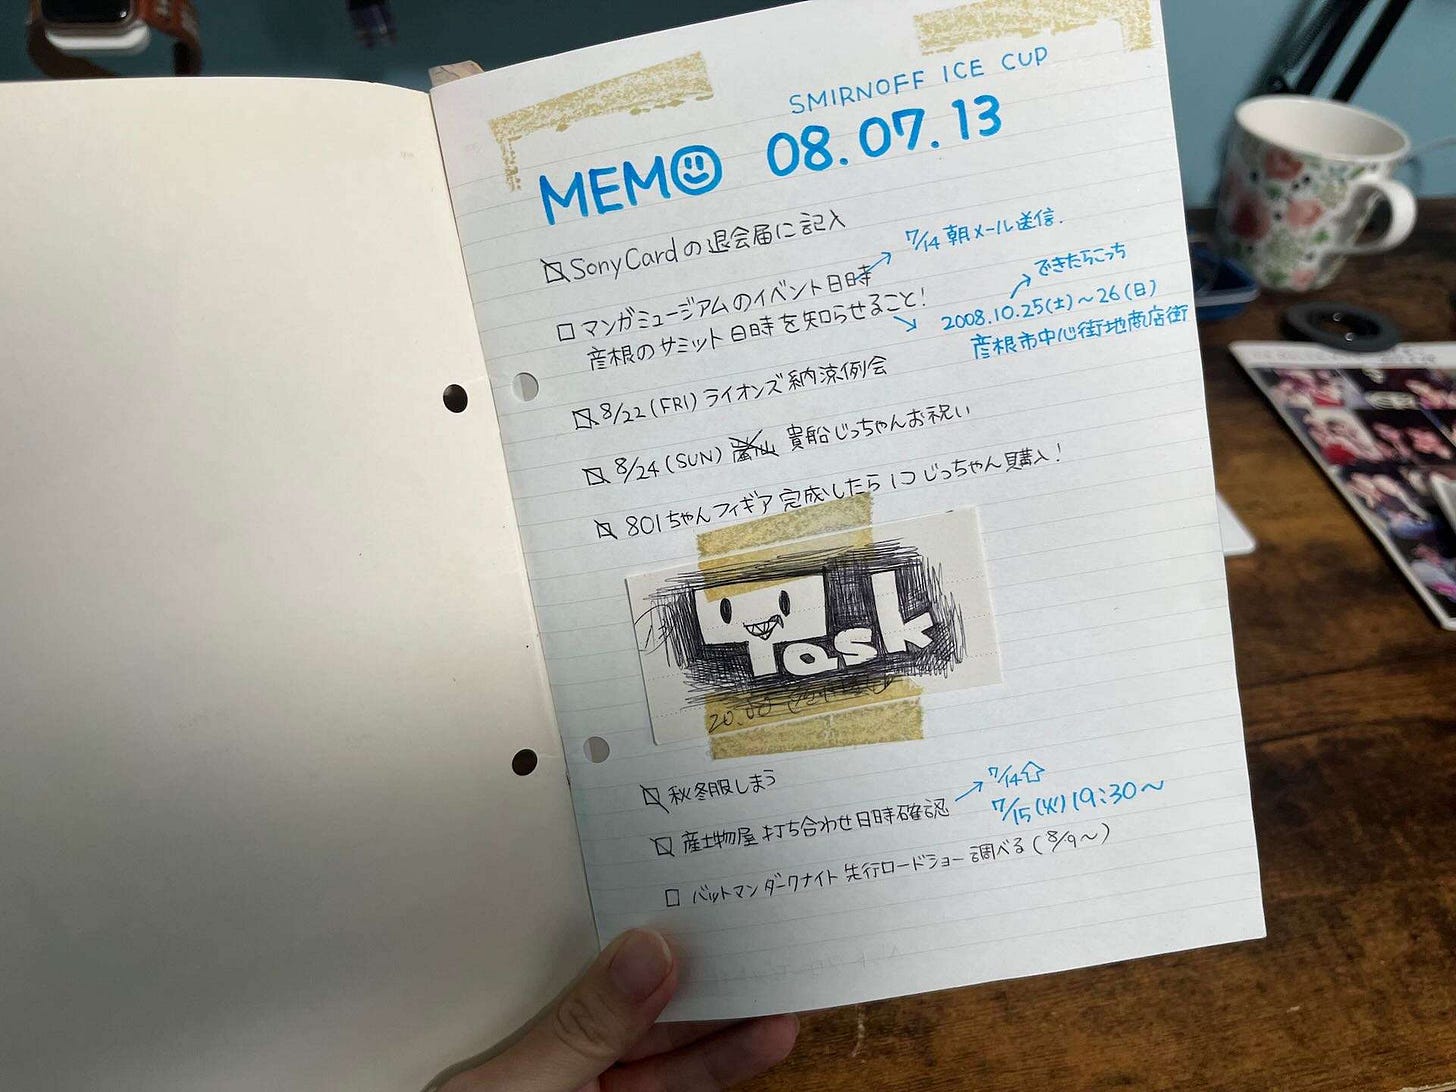 SMIRNOFF ICE CUP
MEMO 08.07.13
SonyCardの退会届に記入
7/14 朝メール送信.
マンガミュージアムのイベント日時
できたらこっち
彦根のサミット日時を知らせること!
2008.10.25(土)〜26(日)
彦根市中心街地商店街
8/22(FRI) ライオンズ納涼例会
8/24(SUN) 嵐山 貴船じっちゃんお祝い
801ちゃんフィギア完成したら1コじっちゃん購入!
Task
秋冬服しまう
7/14
産土物屋打ち合わせ日時確認
7/15(火)19:30〜
バットマンダークナイト先行ロードショー調べる(8/9〜)